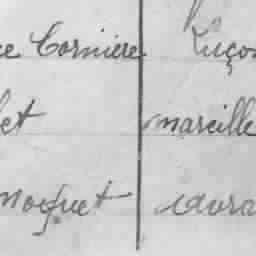 ce Cornière Luço
et marcille
noquet